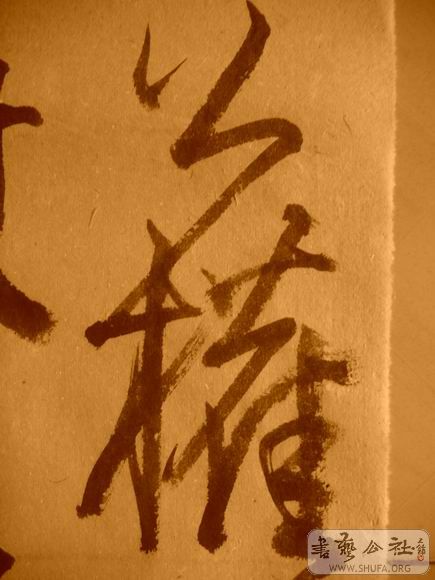 公權
書藝公社
WWW.SHUFA.ORG